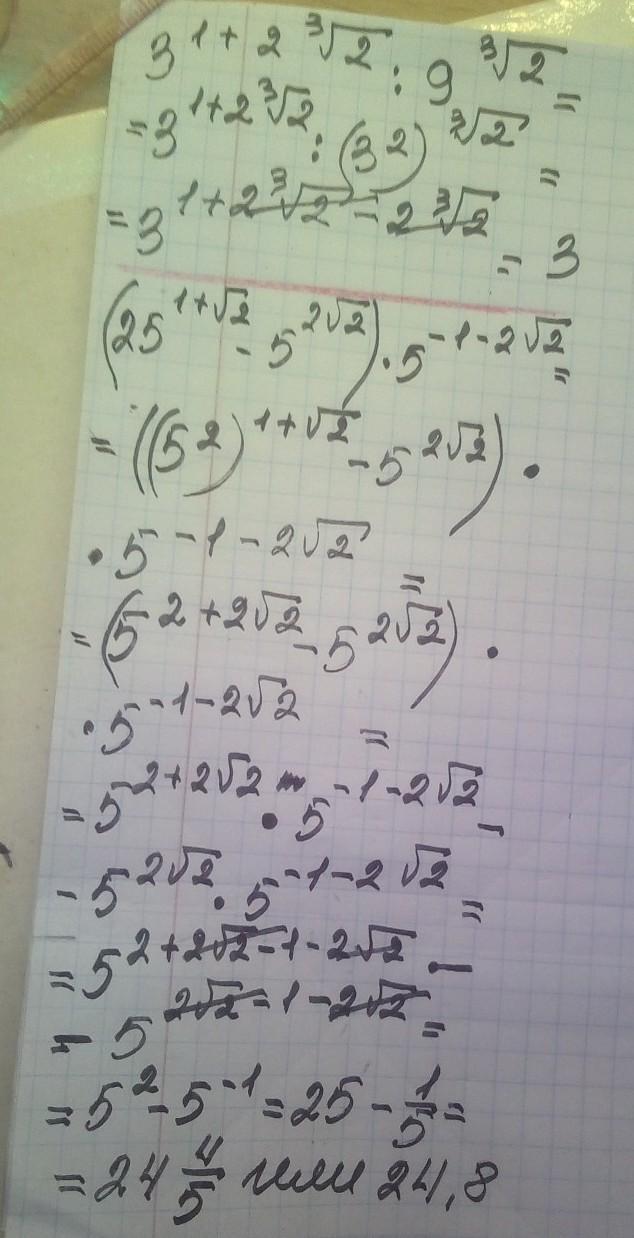 3^{1+2∛2} : 9^{∛2} =
= 3^{1+2∛2} : (3^2)^{∛2} =
= 3^{1+2∛2-2∛2} = 3
(25^{1+√2} - 5^{2√2}) · 5^{-1-2√2} =
= ((5^2)^{1+√2} - 5^{2√2}) ·
· 5^{-1-2√2} =
= (5^{2+2√2} - 5^{2√2}) ·
· 5^{-1-2√2} =
= 5^{2+2√2} · 5^{-1-2√2} -
- 5^{2√2} · 5^{-1-2√2} =
= 5^{2+2√2-1-2√2} -
- 5^{2√2-1-2√2} =
= 5^2 - 5^{-1} = 25 - 1/5 =
= 24 4/5 или 24,8